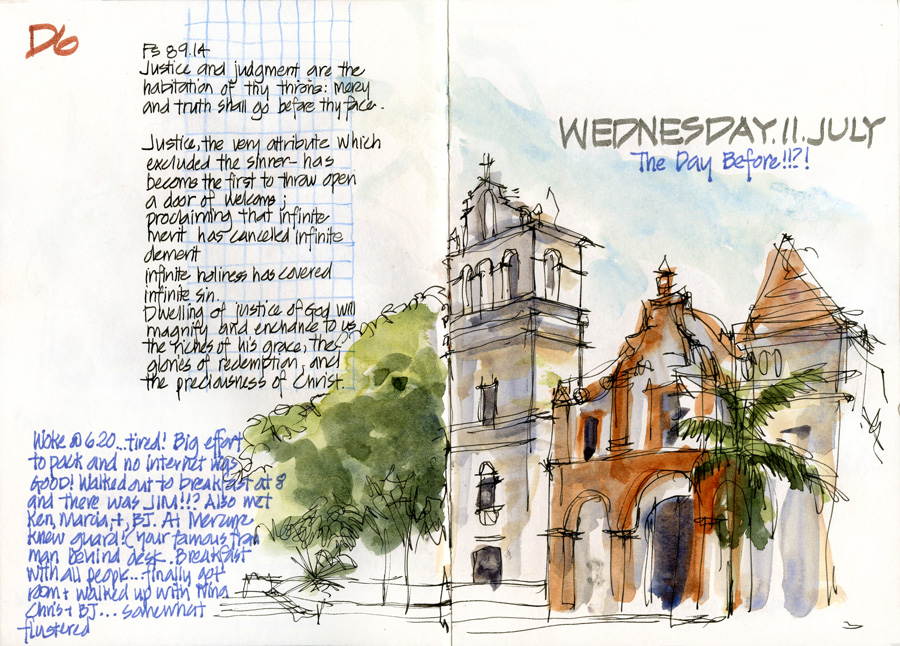 D6
Ps 89.14
Justice and judgment are the
habitation of thy throne: mercy
and truth shall go before thy face.
Justice, the very attribute which
excluded the sinner - has
become the first to throw open
a door of welcome;
proclaiming that infinite
merit has cancelled infinite
demerit
infinite holiness has covered
infinite sin.
Dwelling of justice of God will
magnify and enchance to us
the riches of his grace, the
glories of redemption, and
the preciousness of Christ.
WEDNESDAY.11.JULY
The Day Before!!?!
Woke @ 6.20...tired! Big effort
to pack and no internet was
GOOD! Walked out to breakfast at 8
and there was JIM!!? Also met
Ken, Marcia, + BJ. At
knew guard! (your famous
man behind desk. Breakfast
with all people...finally got
room + walked up with Nina
Chris + BJ... somewhat
flustered